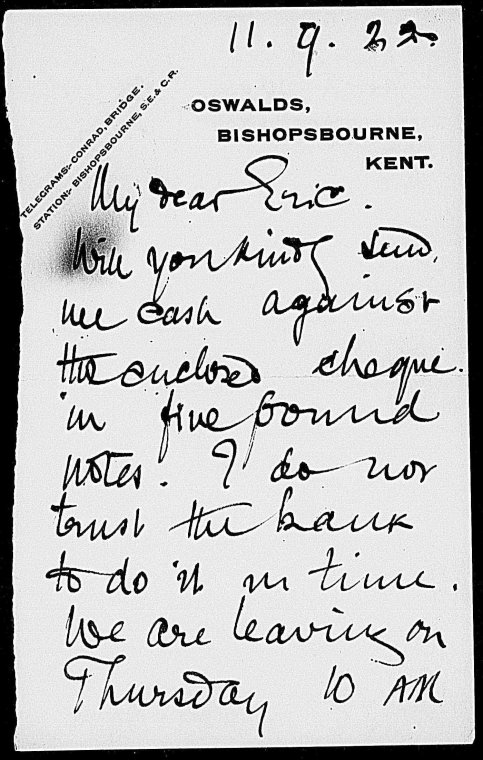 11. 9. 22.
TELEGRAMS:- CONRAD, BRIDGE.
STATION:- BISHOPSBOURNE, S.E. & C.R.
OSWALDS,
BISHOPSBOURNE,
KENT.
My dear Eric.
Will you kindly send
me cash against
the enclosed cheque.
in five pound
notes. I do not
trust the bank
to do it in time.
We are leaving on
Thursday 10 AM